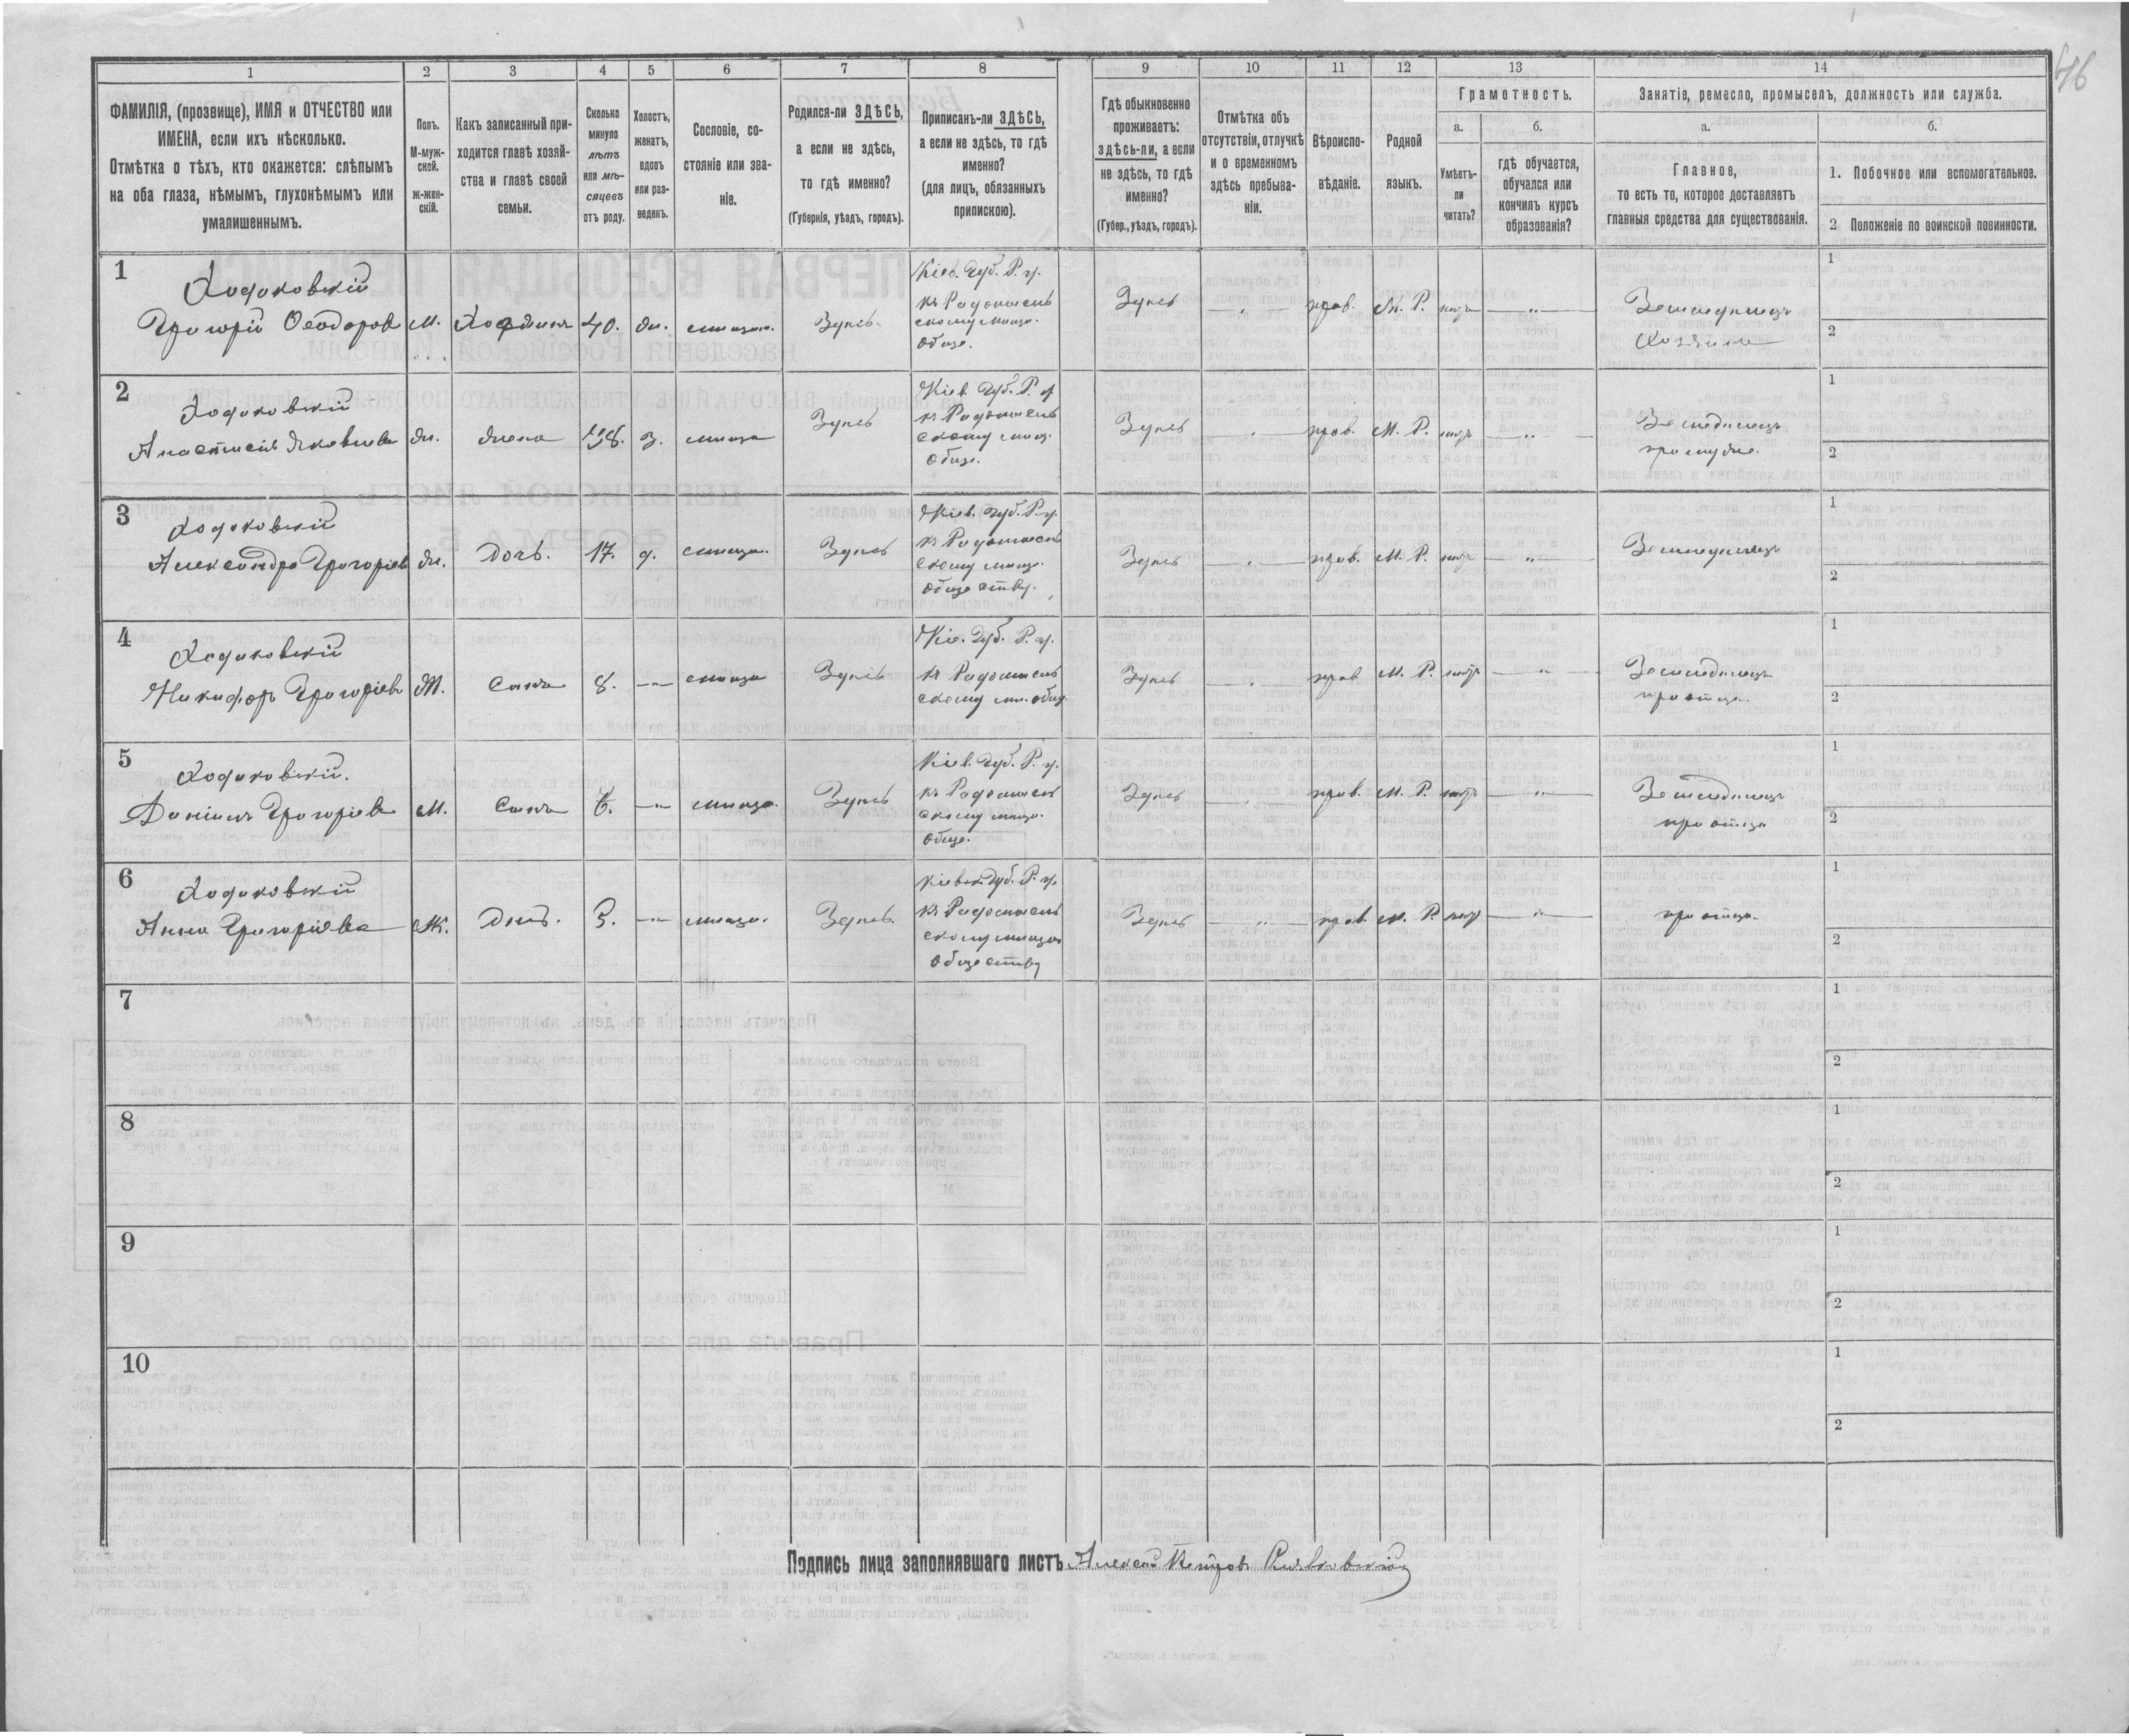 46
1 2 3 4 5 6 7 8 9 10 11 12 13 14
ФАМИЛІЯ, (прозвище), ИМЯ и ОТЧЕСТВО или
ИМЕНА, если ихъ нѣсколько.
Отмѣтка о тѣхъ, кто окажется: слѣпымъ
на оба глаза, нѣмымъ, глухонѣмымъ или
умалишеннымъ.
Полъ.
М-муж-
ской.
ж-жен-
скій.
Какъ записанный при-
ходится главѣ хозяй-
ства и главѣ своей
семьи.
Сколько
минуло
лѣтъ
или мѣ-
сяцевъ
отъ роду.
Холостъ,
женатъ,
вдовъ
или раз-
веденъ.
Сословіе, со-
стояніе или зва-
ніе.
Родился-ли ЗДѢСЬ,
а если не здѣсь,
то гдѣ именно?
(Губернія, уѣздъ, городъ).
Приписанъ-ли ЗДѢСЬ,
а если не здѣсь, то гдѣ
именно?
(для лицъ, обязанныхъ
припискою).
Гдѣ обыкновенно
проживаетъ:
здѣсь-ли, а если
не здѣсь, то гдѣ
именно?
(Губер., уѣздъ, городъ).
Отмѣтка объ
отсутствіи, отлучкѣ
и о временномъ
здѣсь пребыва-
ніи.
Вѣроиспо-
вѣданіе.
Родной
языкъ.
Грамотность.
а.
Умѣетъ-
ли
читать?
б.
гдѣ обучается,
обучался или
кончилъ курсъ
образованія?
Занятіе, ремесло, промыселъ, должность или служба.
а.
Главное,
то есть то, которое доставляетъ
главныя средства для существованія.
б.
1. Побочное или вспомогательное.
2 Положеніе по воинской повинности.
1
Ходаковскій
Григорій Ѳеодоров м. Хозяинъ 40. жн. Здѣсь.
Кіев. Губ. Р. у.
къ Радомысль
скому мѣщ.
Общ.
Здѣсь прав. М. Р. нѣтъ
Земледѣлецъ
Хозяинъ
1
2
2
Ходаковскій
Анастасія Яковлева ж. жена 38. з. мѣща Здѣсь
Кіев. Губ. Р. у
къ Радомысль
скому мѣщ.
Общ.
Здѣсь прав. М. Р. нѣтъ
Земледѣлецъ
1
2
3
Ходаковскій
Александра Григоріев ж. Дочь. 17. д. Здѣсь
Кіев. Губ. Р. у.
къ Радомысль
скому мѣщ.
Обществу.
Здѣсь прав. М. Р. нѣтъ
Земледѣлецъ
1
2
4
Ходаковскій
Никифоръ Григоріев М. Сынъ 8. мѣща Здѣсь
Кіе. Губ. Р. у.
къ Радомысль
скому мѣ. общ.
Здѣсь прав М. Р. нѣтъ
Земледѣлецъ
при отцѣ.
1
2
5
Ходаковскій.
Даніилъ Григоріев М. Сынъ 6. мѣща. Здѣсь
Кіев. Губ. Р. у.
къ Радомысль
скому мѣщ.
Общ.
Здѣсь прав. М. Р. нѣтъ
Земледѣлецъ
при отцѣ
1
2
6
Ходаковскій
Анна Григоріева Ж. 3. мѣща. Здѣсь.
Кіевск. Губ. Р. у.
къ Радомысль
скому мѣщан
Обществу
Здѣсь прав. М. Р. нѣтъ
при отцѣ.
1
2
7
1
2
8
1
2
9
1
2
10
1
2
Подпись лица заполнявшаго листъ Алексѣй Петров